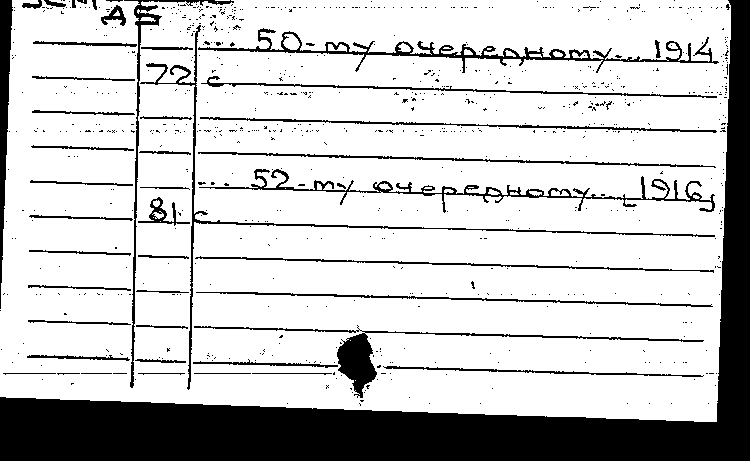 ... 50-му очередному... 1914
72 с.
... 52-му очередному... [1916]
81 с.